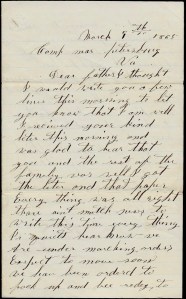 March 8th 1865
Camp near petersburg
Va
Dear father I thought
I would write you a few
lines this morning to let
you know that I am well
I received your kind
leter this morning and
was glad to hear that
you and the rest of the
family was well I got
the leter and that paper
Every thing was all right
there aint mutch news to
write this time every thing
is quiet here but we
are under marching orders
Expect to move soon
we have been ordered to
pack up and be redy to